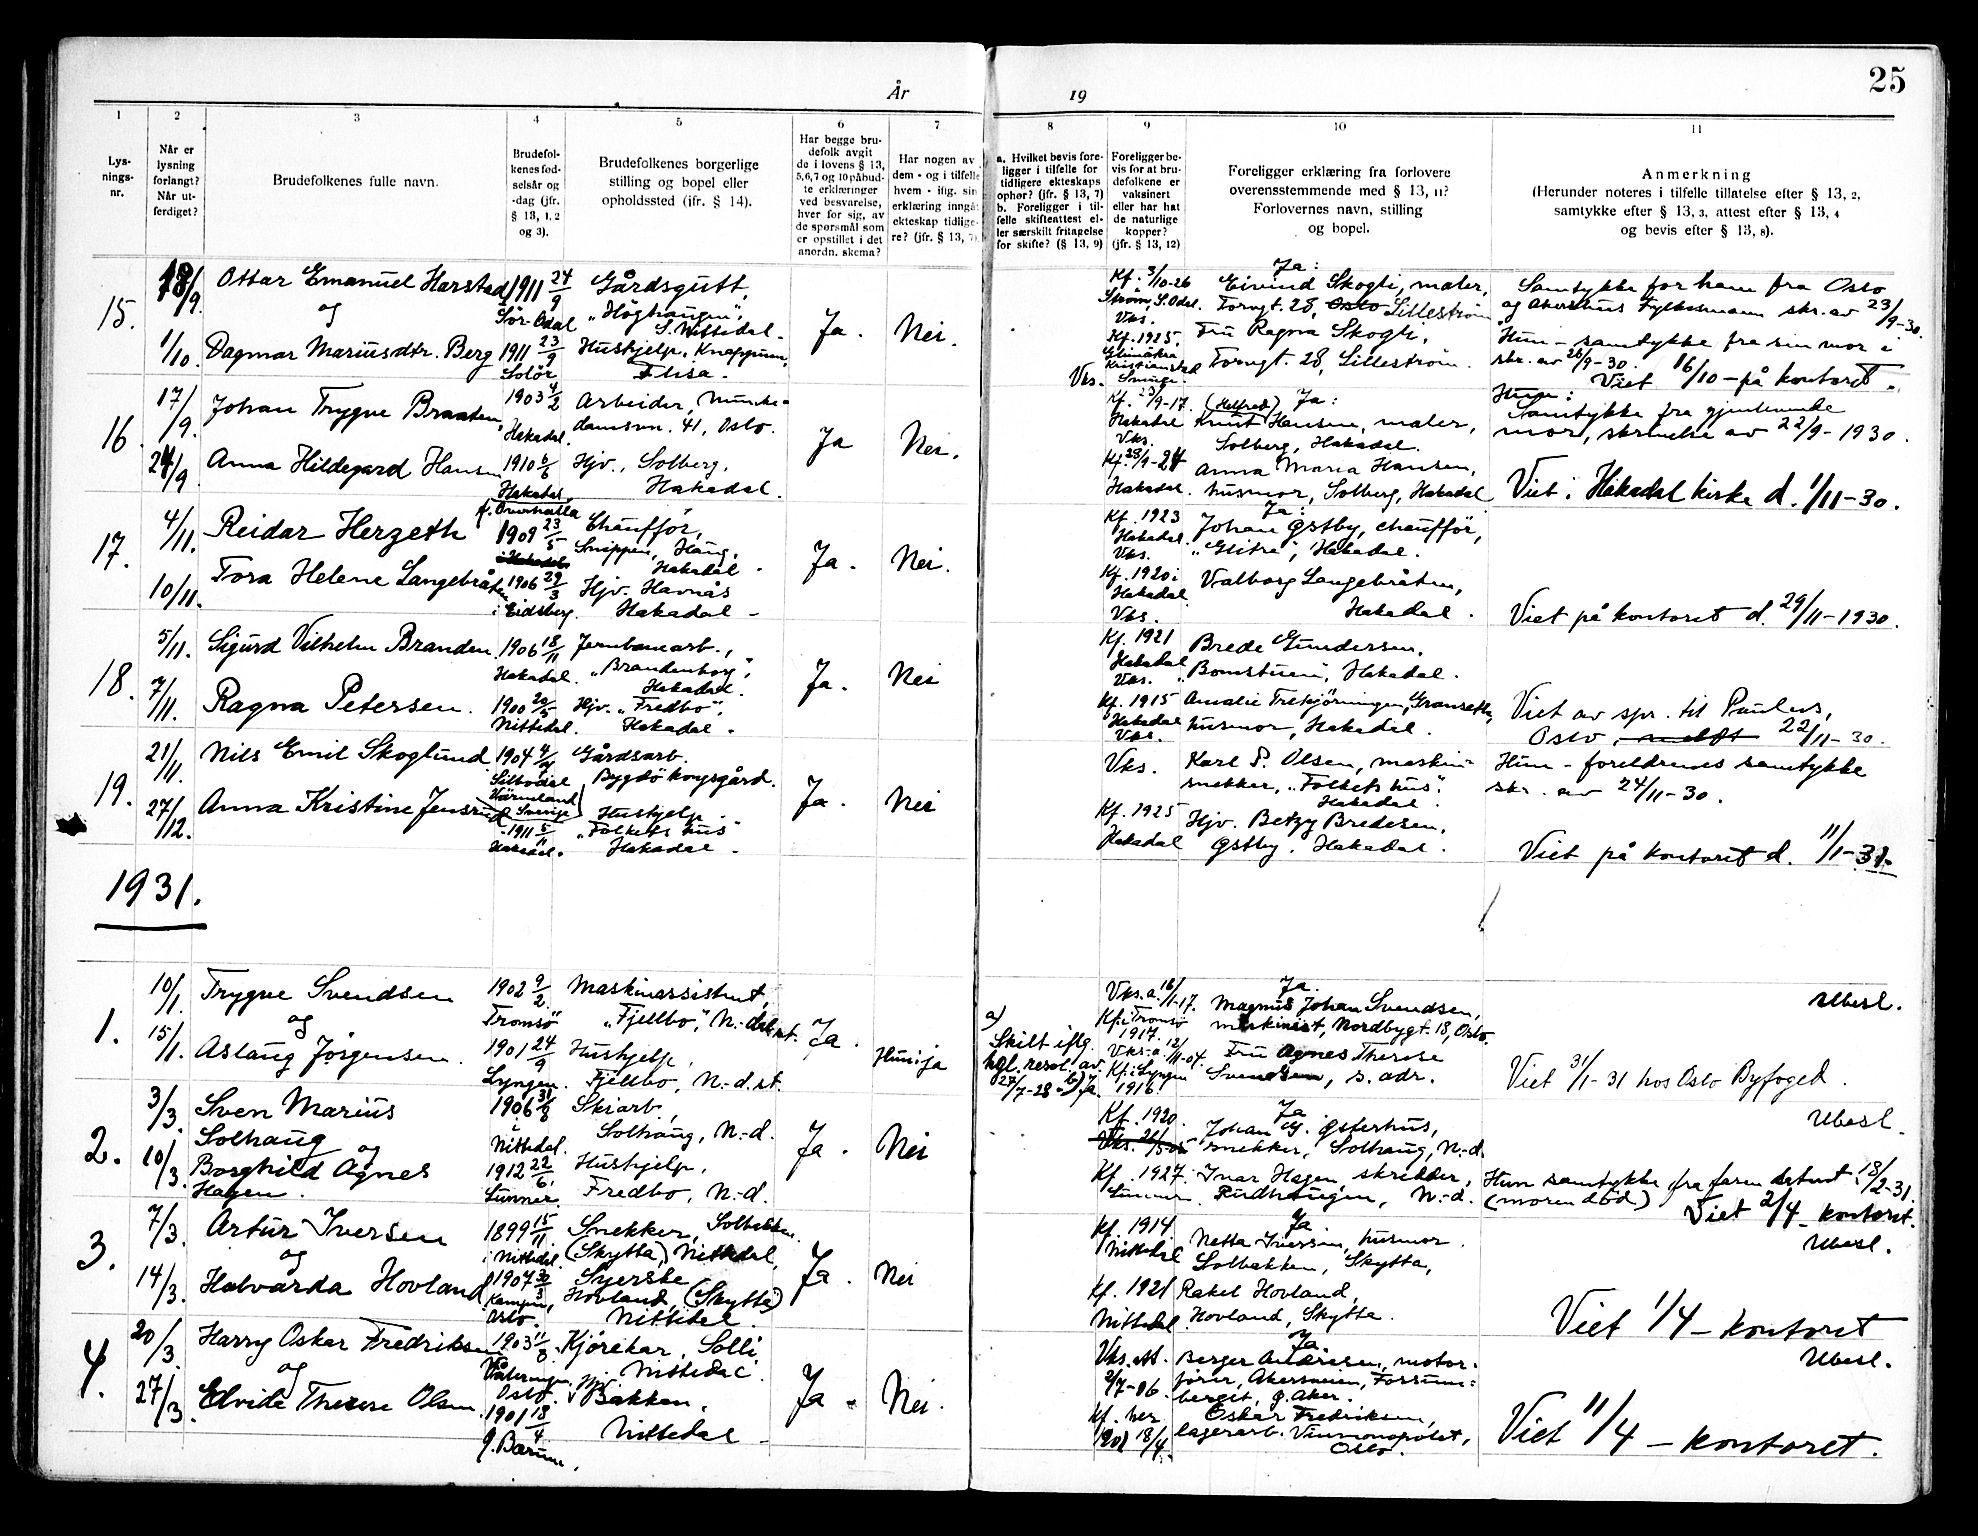 25
År
19
1
2
3
4
5
6
7
8
9
10
11
Lys-
nings-
nr.
Når er
lysning
forlangt?
Når ut-
ferdiget?
Brudefolkenes fulle navn.
Brudefol-
kenes fød-
selsår og
-dag (jfr.
§ 13, 1, 2
og 3).
Brudefolkenes borgerlige
stilling og bopel eller
opholdssted (ifr. § 14).
Har begge bru-
defolk avgit
de i lovens § 13,
5,6,7 og 10 påbud-
te erklæringer
ved besvarelse,
hver for sig, av
de spørsmål som
er opstillet i det
anordn. skema?
Har nogen av
dem - og i tilfelle
hvem - iflg. sin
erklæring inngå
ekteskap tidlige-
re? (jfr. § 13, 7)
a. Hvilket bevis fore-
ligger i tilfelle for
tidligere ekteskaps
ophør? (jfr. § 13, 7)
b. Foreligger i til-
felle skifteattest el-
ler særskilt fritagelse
for skifte? (§ 13, 9)
Foreligger be-
vis for at bru-
defolkene er
vaksinert
eller har hat
de naturlige
kopper?
(jfr. § 13, 12)
Foreligger erklæring fra forlovere
overensstemmende med § 13, 11?
Forlovernes navn, stilling
og bopel.
Anmerkning
(Herunder noteres i tilfelle tillatelse efter § 13, 2,
samtykke efter § 13, 3, attest efter § 13, 4
og bevis efter § 13, 8).
15.
18/9.
1/10.
Ottar Emanuel Harstad
og
Dagmar Mariusdtr. Berg
1911 24/9
Sör-Odal
1911 23/9
Solör
Gårdsgutt,
"Höghaugen",
S. Nittedal.
Hushjelp, Knappum,
Flisa.
Ja.
Nei.
Kf. 3/10-26
Strøm, S. Odal.
Vks.
Kf. 1925.
Vks.
Ja:
Eivind Skogli, maler,
Torvgt. 28, Oslo Lilleström
Fru Ragna Skogli,
Torvgt. 28, Lilleström.
Samtykke for ham fra Oslo
og Akershus Fylkesmann skr. av 23/9-30.
Hun - samtykke fra sin mor i
skr. av 26/9-30.
Viet 16/10 - på kontoret.
16.
17/9.
24/9
Johan Trygve Braaten,
Anna Hildegard Hansen
1903 4/2
Hakadal.
1910 6/6
Hakadal.
Arbeider, Munke-
damsvn. 41, Oslo.
Hjv., Solberg,
Hakadal.
Ja
Nei.
Kf. 23/9-17.
Hakadal
Vks.
Kf. 23/9-24
Hakadal.
(Helfred) Ja:
Knut Hansen, maler,
Solberg, Hakadal.
Anna Maria Hansen,
husmor, Solberg, Hakadal
Hun:
Samtykke fra gjenlevende
mor, skrivelse av 22/9-1930.
Viet i Hakadal kirke d. 1/11-30.
17.
4/11.
10/11.
Reidar Herzeth
Tora Helene Langebråten
1909 23/5
1906 29/3
i Eidsberg.
Chauffør,
Snippen, Haug,
Hakadal.
Hjv. Havnås
Hakadal -
Ja.
Nei.
Kf. 1923
Hakadal.
Vks.
Kf. 1920 i
Hakadal
Vks.
Ja:
Johan Østby, chauffør,
"Glitre", Hakadal.
Valborg Langebråten,
Hakadal.
Viet på kontoret d. 29/11-1930.
18.
5/11.
7/11.
Sigurd Vilhelm Branden
Ragna Petersen.
1906 18/11
Hakadal.
1900
Nittedal.
Jernbanearb.,
"Brandenborg",
Hakadal.
Hjv. "Fredbo",
Hakadal.
Ja.
Nei
Kf. 1921
Hakadal
Vks.
Kf. 1915
Hakadal
Vks.
Brede Gundersen,
Bomstuen, Hakadal.
husmor, Hakadal.
Viet av spr. til Paulus,
Oslo, 22/11-30.
19.
21/11.
27/12.
Nils Emil Skoglund
Anna Kristine Jensrud
1904
Silbodal
Värmland
Sverige
1911 5/11
Hakadal.
Gårdsarb.
Bygdö kongsgård.
Hushjelp.
"Folkets hus"
Hakadal.
Ja.
Nei
Vks.
Kf. 1925
Hakadal
Karl P. Olsen, maskin-
snekker, "Folkets hus",
Hakadal.
Hjv. Betzy Bredesen,
Østby, Hakadal.
Hun - foreldrenes samtykke
skr. av 24/11-30.
Viet på kontoret d. 11/1-31.
1931.
1.
10/1
15/1.
Trygve Svendsen
og
Aslaug Jørgensen.
1902 9/2
Tromsö
1901 24/9
Lyngen.
Maskinassistent,
"Fjellbo", N.-dal st.
Hushjelp,
Fjellbo, N.-d. st.
Ja.
Hun: ja
a)
Skilt iflg.
kgl. resol. av
27/7-28 - b) Ja.
Vks.a. 16/1-17.
Kf. i Tromsö
1917.
Vks.a. 12/11-04.
Kf. i Lyngen
1916.
Ja.
Magnus Johan Svendsen,
maskinist, Nordbygt. 18, Oslo.
Fru Agnes Therese
Svendsen, s. adr.
Ubesl.
Viet 31/1-31 hos Oslo Byfoged.
2.
3/3.
10/3.
Sven Marius
Solhaug
og
Borghild Agnes
Hagen.
1906 31/8
Nittedal.
1912 22/6.
Lunner
Skiarb.,
Solhaug, N.-d.
Hushjelp,
Fredbo, N.-d.
Ja.
Nei
Kf. 1920.
Kf. 1927.
Lunner
Ja
Johan G. Østerhus,
snekker, Solhaug, N.-d.
Ivar Hagen, skredder,
Rudhaugen, N.-d.
Ubesl.
Hun samtykke fra faren datert 18/2-31.
(moren död)
Viet 2/4 - kontoret.
3.
7/3.
14/3.
Artur Iversen
og
Halvarda Hovland
1899 15/11
i Nittedal.
1907 30/3
Kampen,
Oslo.
Snekker, Solbakken
(Skytta), Nittedal,
Syerske
Hovland, (Skytta)
Nittedal.
Ja.
Nei
Kf. 1914
Nittedal
Kf. 1921
Nittedal.
Ja
Netta Iversen, husmor.
Solbakken, Skytta,
Rakel Hovland,
Hovland, Skytta.
Ubesl.
Viet 1/4 - kontoret
4.
20/3.
27/3.
Harry Oskar Fredriksen
og
Elvida Therese Olsen.
1903 11/8
Vålerengen,
Oslo.
1901 18/4
Ø. Bærum.
Kjörekar, Solli
Nittedal.
Hjv.
Bakken,
Nittedal -
Ja.
Nei.
Vks.att.
2/7-06.
Kf. her
18/4.
Ja.
Berger Andresen, motor-
fører, Akersveien,
Ø. Aker.
Oskar Fredriksen,
lagerarb. Vinmonopolet,
Oslo.
Ubesl.
Viet 11/4 - kontoret.